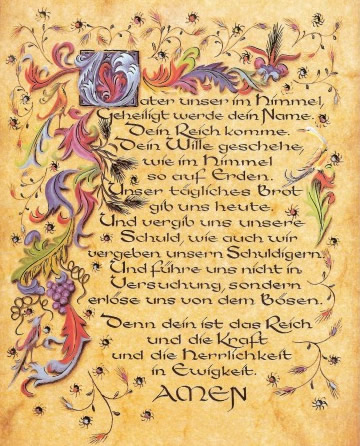 Vater unser im Himmel,
Geheiligt werde dein Name.
Dein Reich komme.
Dein Wille geschehe,
wie im Himmel
so auf Erden.
Unser tägliches Brot
gib uns heute.
Und vergib uns unsere
Schuld, wie auch wir
vergeben unsern Schuldigern.
Und führe uns nicht in
Versuchung, sondern
erlöse uns von dem Bösen.
Denn dein ist das Reich
und die Kraft
und die Herrlichkeit
in Ewigkeit.
AMEN